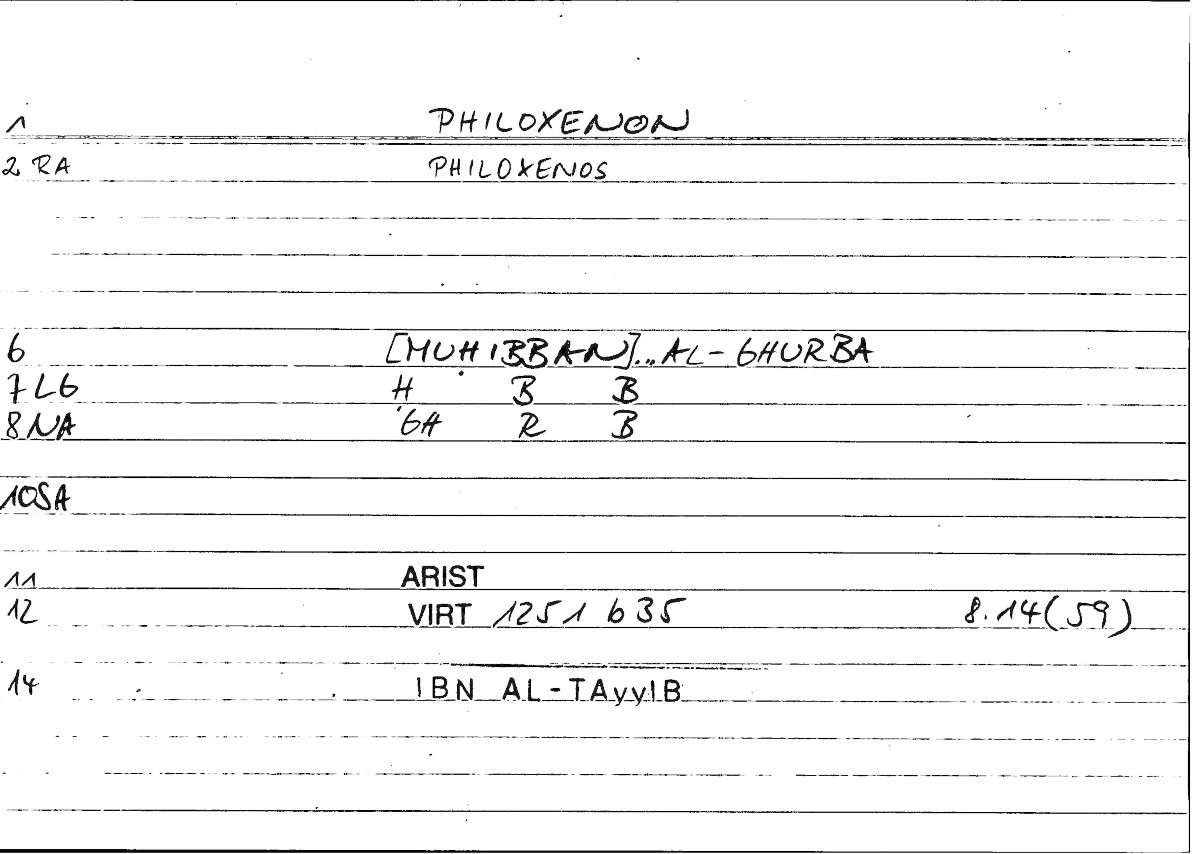 1 PHILOXENON
2 RA PHILOXENOS
6 [MUḤIBBAN]...AL-GHURBA
7 LG Ḥ B B
8 NA GH R B
10SA
11 ARIST
12 VIRT 1251 b 35 8.14(59)
14 IBN AL-TAyyIB